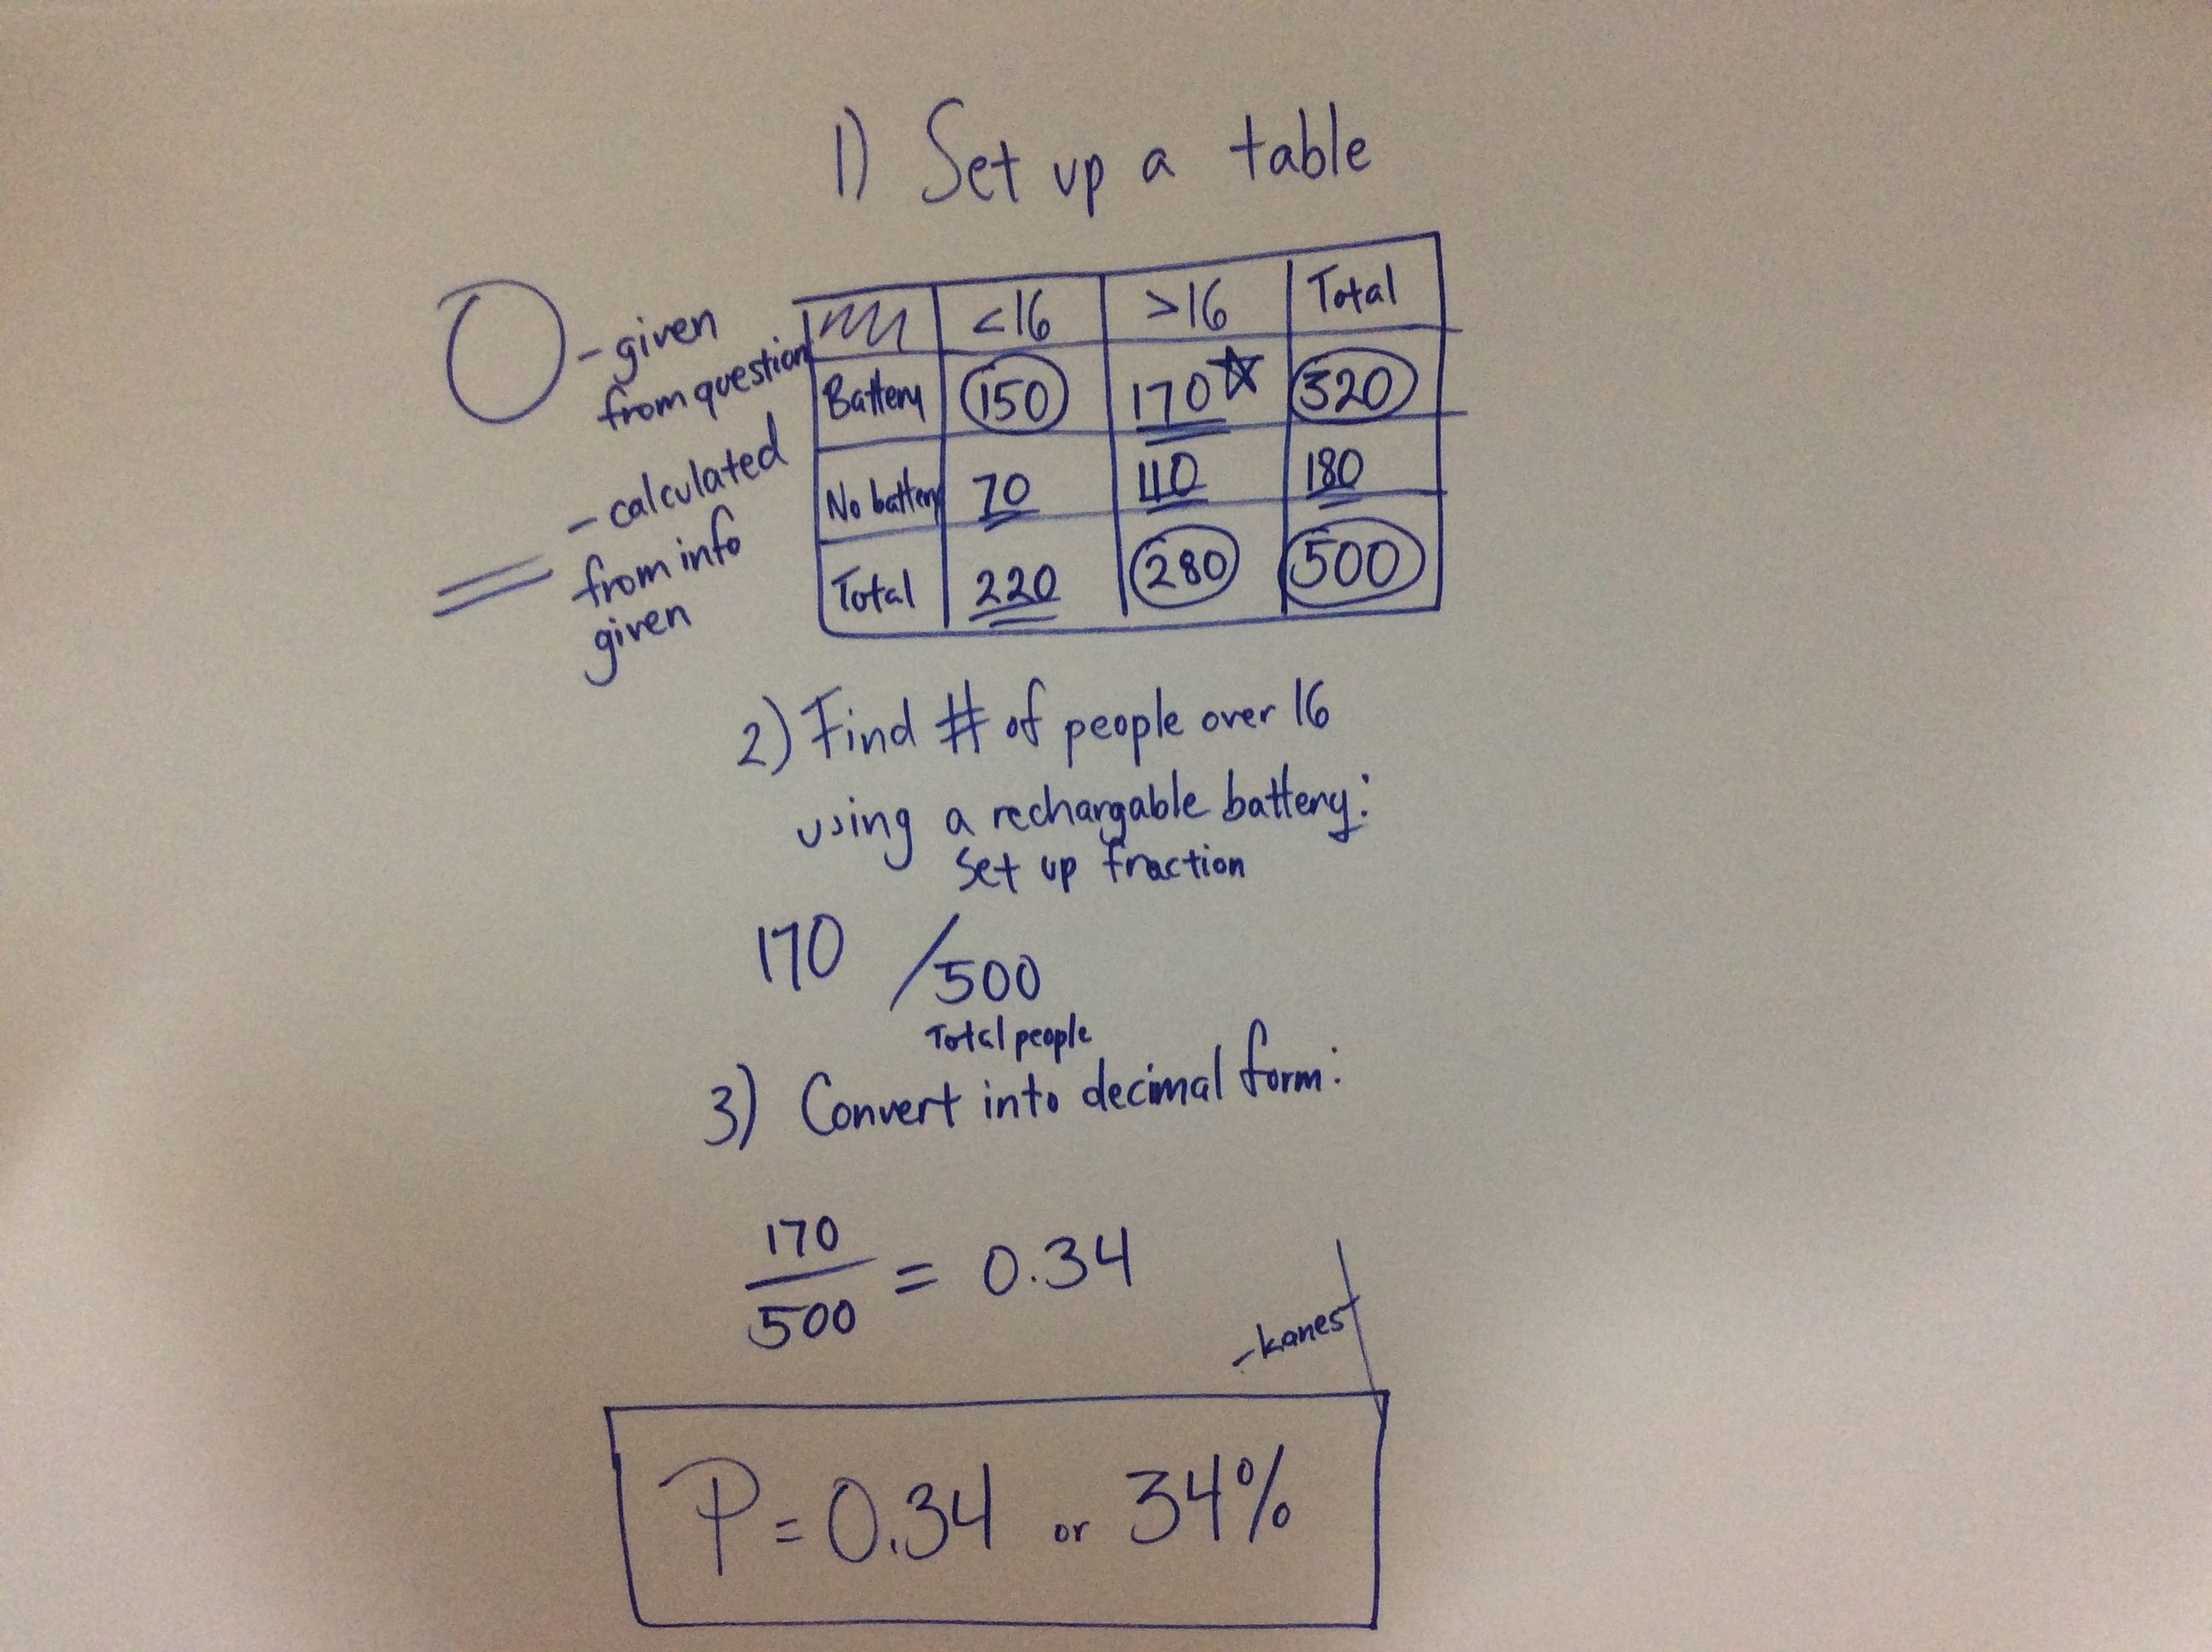 1) Set up a table
<16 >16 Total
Battery 150 170 320
No battery 70 110 180
Total 220 280 500
- given
from question
- calculated
from info
given
2) Find # of people over 16
using a rechargable battery:
Set up fraction
170 / 500
Total people
3) Convert into decimal form:
170
500
= 0.34
- kanest
P = 0.34 or 34%